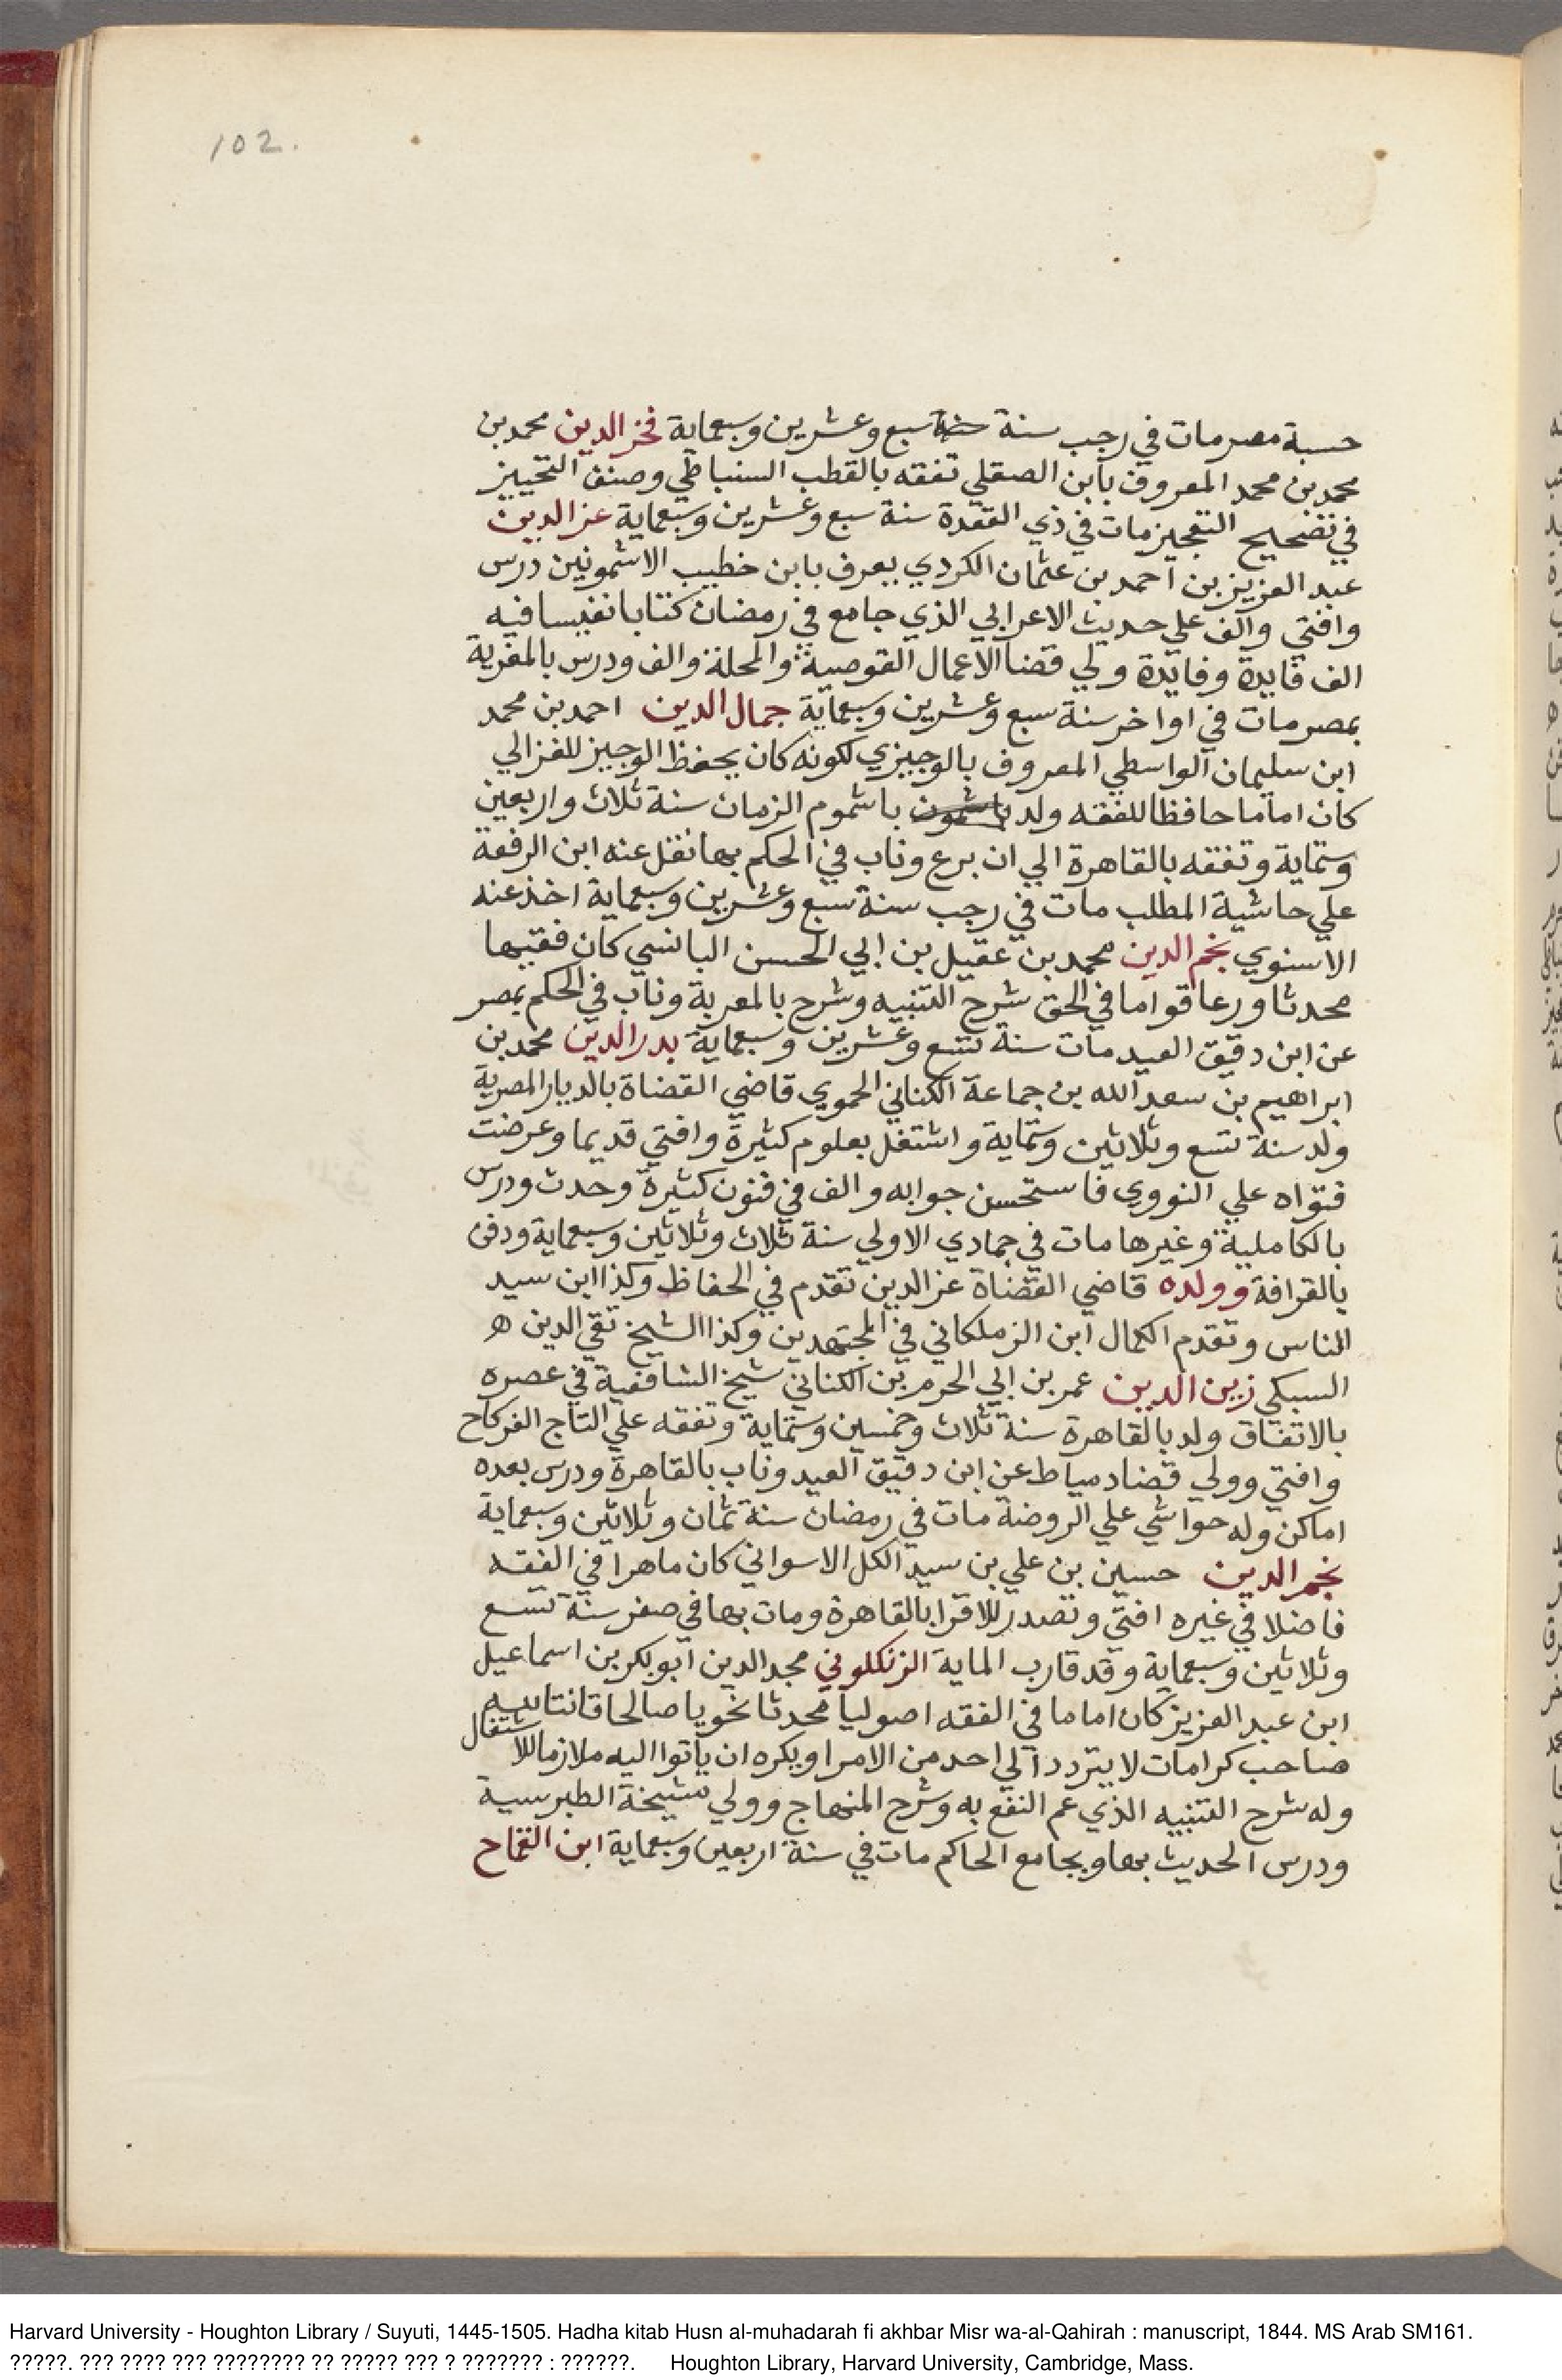 102.
حسبة مصر مات في رجب سنة سبع وعشرين وسبعماية فخر الدين محمد بن
محمد بن محمد المعروف بابن الصقلي تفقه بالقطب السنباطي وصنف التخييز
في تصحيح التعجيز مات في ذي القعدة سنة سبع وعشرين وسبعماية عز الدين
عبد العزيز بن احمد بن عثمان الكردي يعرف بابن خطيب الاشمونين درس
وافتي والف علي حديث الاعرابي الذي جامع في رمضان كتابا نفيسا فيه
الف فايدة وفايدة ولي قضا الاعمال القوصية والمحلة والف ودرس بالمغربة
بمصر مات في اواخر سنة سبع وعشرين وسبعماية جمال الدين احمد بن محمد
ابن سليمان الواسطي المعروف بالوجيزي لكونه كان يحفظ الوجيز للغزالي
كان اماما حافظا للفقه ولد باشمون باشموم الزمان سنة ثلاث واربعين
وستماية وتفقه بالقاهرة الي ان برع وناب في الحكم بها نقل عنه ابن الرفعة
علي حاشية المطلب مات في رجب سنة سبع وعشرين وسبعماية اخذ عنه
الاسنوي نجم الدين محمد بن عقيل بن ابي الحسن البالسي كان فقيها
محدثا ورعا قواما في الحق شرح التنبيه وشرح بالمعربة وناب في الحكم بمصر
عن ابن دقيق العيد مات سنة تسع وعشرين وسبعماية بدر الدين محمد بن
ابراهيم بن سعد الله بن جماعة الكناني الحموي قاضي القضاة بالديار المصرية
ولد سنة تسع وثلاثين وستماية واشتغل بعلوم كثيرة وافتي قديما وعرضت
فتواه علي النووي فاستحسن جوابه والف في فنون كثيرة وحدث ودرس
بالكاملية وغيرها مات في جمادي الاولي سنة ثلاث وثلاثين وسبعماية ودفن
بالقرافة وولده قاضي القضاة عز الدين تقدم في الحفاظ وكذا ابن سيد
الناس وتقدم الكمال ابن الزملكاني في المجتهدين وكذا الشيخ تقي الدين ه
السبكي زين الدين عمر بن ابي الحرم بن الكناني شيخ الشافعية في عصره
بالاتفاق ولد بالقاهرة سنة ثلاث وخمسين وستماية وتفقه علي التاج الفركاح
وافتي وولي قضا دمياط عن ابن دقيق العيد وناب بالقاهرة ودرس بعده
اماكن وله حواشي علي الروضة مات في رمضان سنة ثمان وثلاثين وسبعماية
نجم الدين حسين بن علي بن سيد الكل الاسواني كان ماهرا في الفقه
فاضلا في غيره افتي وتصدر للاقرا بالقاهرة ومات بها في صفر سنة تسع
وثلاثين وسبعماية وقد قارب الماية الزنكلوني مجد الدين ابو بكر بن اسماعيل
ابن عبد العزيز كان اماما في الفقه اصوليا محدثا نحويا صالحا قانتا لله
صاحب كرامات لا يتردد الي احد من الامرا ويكره ان ياتوا اليه ملازما للاشتغال
وله شرح التنبيه الذي عم النفع به وشرح المنهاج وولي مشيخة الطبرسية
ودرس الحديث بها وبجامع الحاكم مات في سنة اربعين وسبعماية ابن القماح
Harvard University - Houghton Library / Suyuti, 1445-1505. Hadha kitab Husn al-muhadarah fi akhbar Misr wa-al-Qahirah : manuscript, 1844. MS Arab SM161.
?????. ??? ???? ??? ???????? ?? ????? ??? ? ??????? : ??????. Houghton Library, Harvard University, Cambridge, Mass.